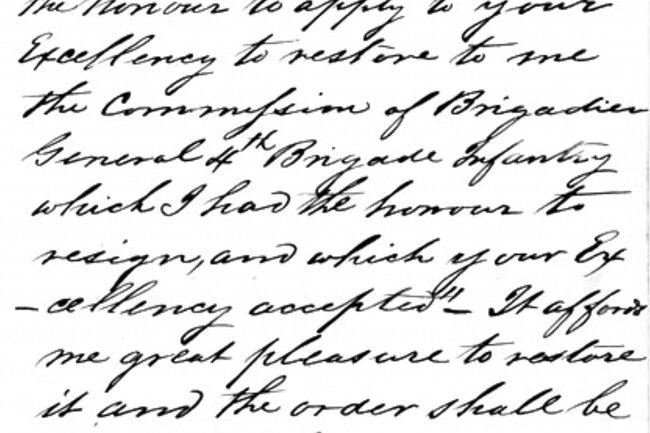 the honour to apply to your
Excellency to restore to me
the Commission of Brigadier
General 4th Brigade Infantry
which I had the honour to
resign, and which your Ex
-cellency accepted" - It affords
me great pleasure to restore
it and the order shall be